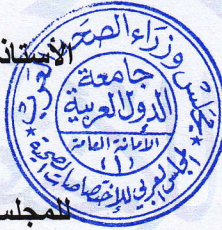 الأستاذ
مجلس وزراء الصحة العرب
جامعة
الدول العربية
الأمانة العامة
(١)
المجلس العربي للإختصاصات الصحية
للمجلس